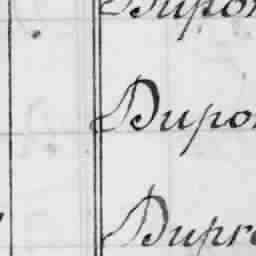 Dupon
Dupon
Dupré